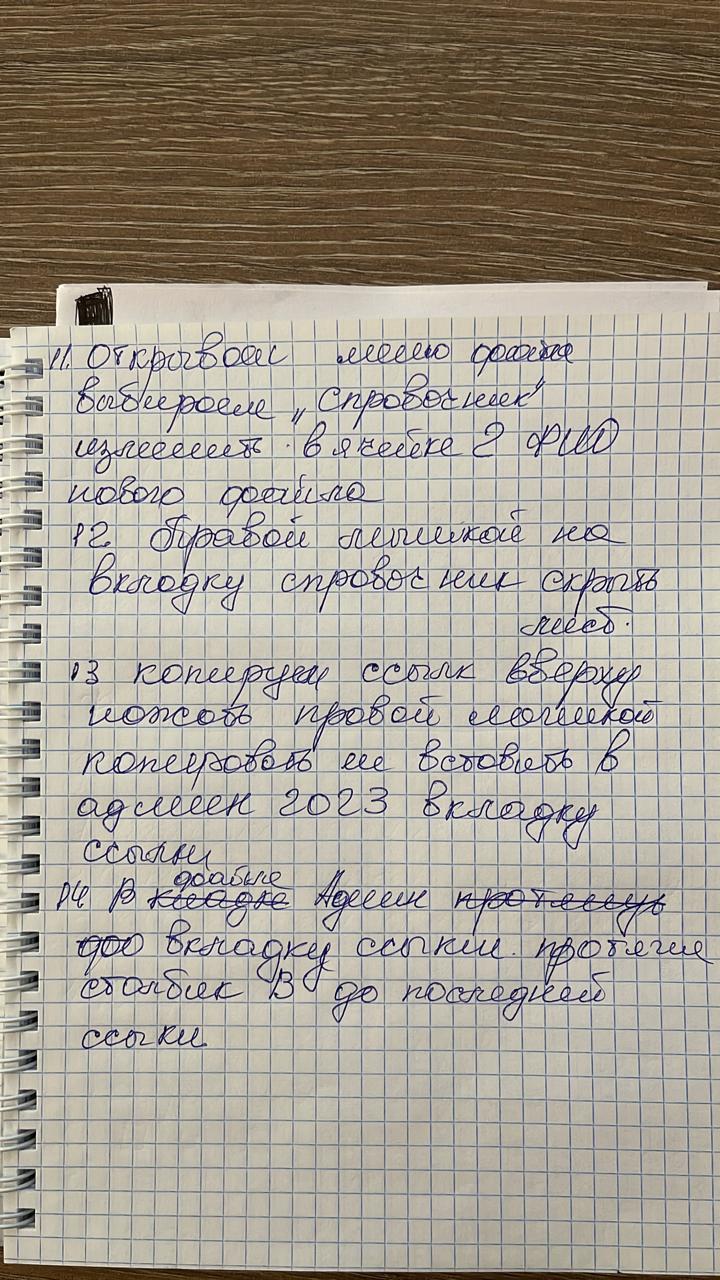 11. Открываем меню файла
выбираем „Справочник"
изменить в ячейке 2 ФИО
нового файла
12. Правой мышкой на
вкладку справочник скрыть
лист.
13 копируем ссылк вверху
нажать правой мышкой
копировать и вставить в
админ 2023 вкладку
ссылки
файле
14 В Админ
вкладку ссыки. протягив
столбик В до последней
ссыки